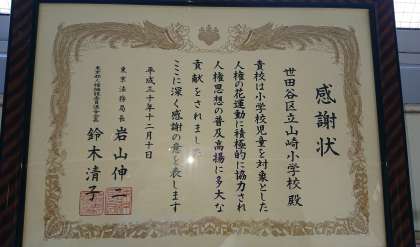 感謝状
世田谷区立山崎小学校 殿
貴校は小学校児童を対象とした
人権の花運動に積極的に協力され
人権思想の普及高揚に多大な
貢献をされました
ここに深く感謝の意を表します
平成三十年十二月十日
東京法務局長 岩山伸二
東京都人権擁護委員連合会長 鈴木清子